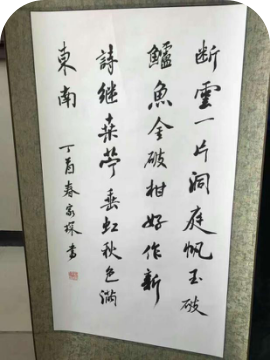 断雲一片洞庭帆玉破
鱸魚金破柑好作新
詩继桑苧垂虹秋色滿
東南
丁酉春家書